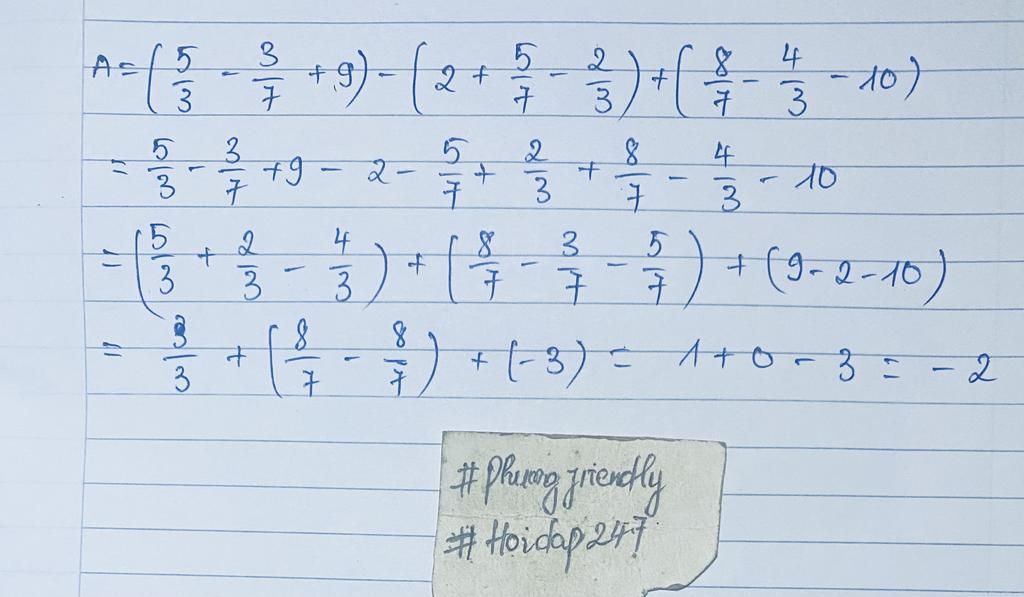 A = (5/3 - 3/7 + 9) - (2 + 5/7 - 2/3) + (8/7 - 4/3 - 10)
= 5/3 - 3/7 + 9 - 2 - 5/7 + 2/3 + 8/7 - 4/3 - 10
= (5/3 + 2/3 - 4/3) + (8/7 - 3/7 - 5/7) + (9 - 2 - 10)
= 3/3 + (8/7 - 8/7) + (-3) = 1 + 0 - 3 = -2
# Phuong friendly
# Hoidap247